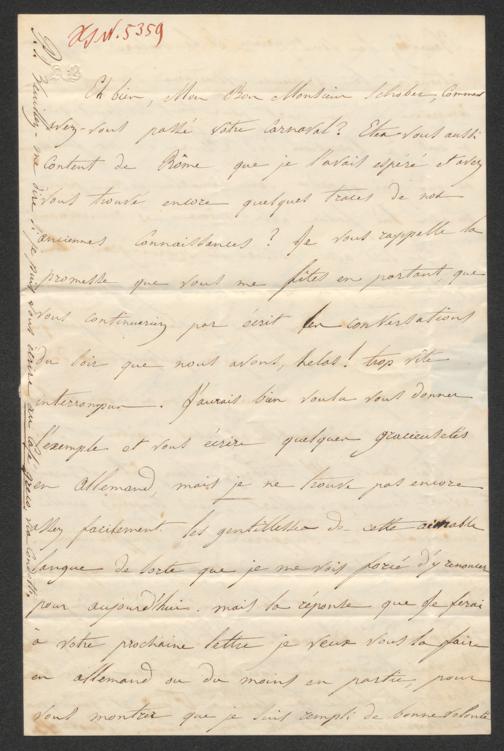 N. 5359
Eh bien, Mon Bon Monsieur Schober, Comment
avez-vous passé votre Carnaval? Etes vous aussi
Content de Rôme que je l'avais esperé et avez
vous trouvé encore quelques traces de nos
anciennes connaissances? Je vous rappelle la
promesse que vous me fîtes en partant, que
vous continueriez par écrit les conversations
du soir que nous avons, helas! trop vite
interrompues. J'aurais bien voulu vous donner
l'exemple et vous écrire quelques gracieusetés
en allemand, mais je ne trouve pas encore
assez facilement les gentillesses de cette aimable
langue de sorte que je me vois forcé d'y renoncer
pour aujourd'hui. mais la réponse que je ferai
à votre prochaine lettre je veux vous la faire
en allemand ou du moins en partie, pour
vous montrer que je suis rempli de bonne volonté
P.S. Veuillez me dire si je puis vous écrire au Café greco, via Condotti.